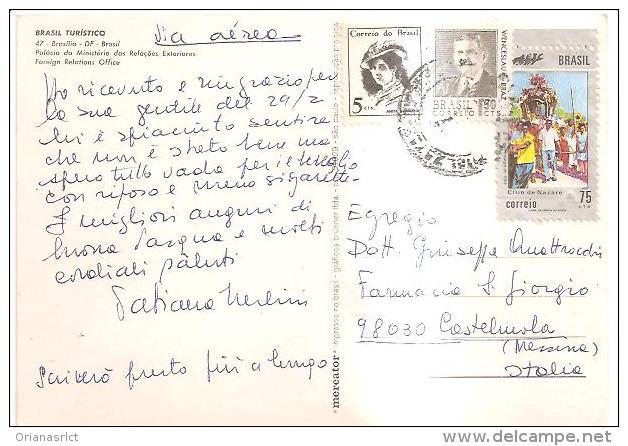 BRASIL TURÍSTICO
47 - Brasília - DF - Brasil
Palácio do Ministério das Relações Exteriores
Foreign Relations Office
Via aérea
Ho ricevuto e ringrazio per
la sua gentile del 29/2
Mi è spiaciuto sentire
che non è stato bene ma
spero tutto vada per il meglio
con riposo e meno sigarette.
I migliori auguri di
buona Pasqua e molti
cordiali saluti
Tatiana
Scriverò presto più a lungo
mercator
Correio do Brasil
5
CTS.
BRASIL 90
CORREIO CTS
WENCESLAU BRAZ
BRASIL
Círio de Nazaré
correio 75
CTS
Egregio
Dott. Giuseppe Quattrocchi
Farmacia S. Giorgio
98030 Castelmola
(Messina)
Italia
Orianasrlct
delcampe.net